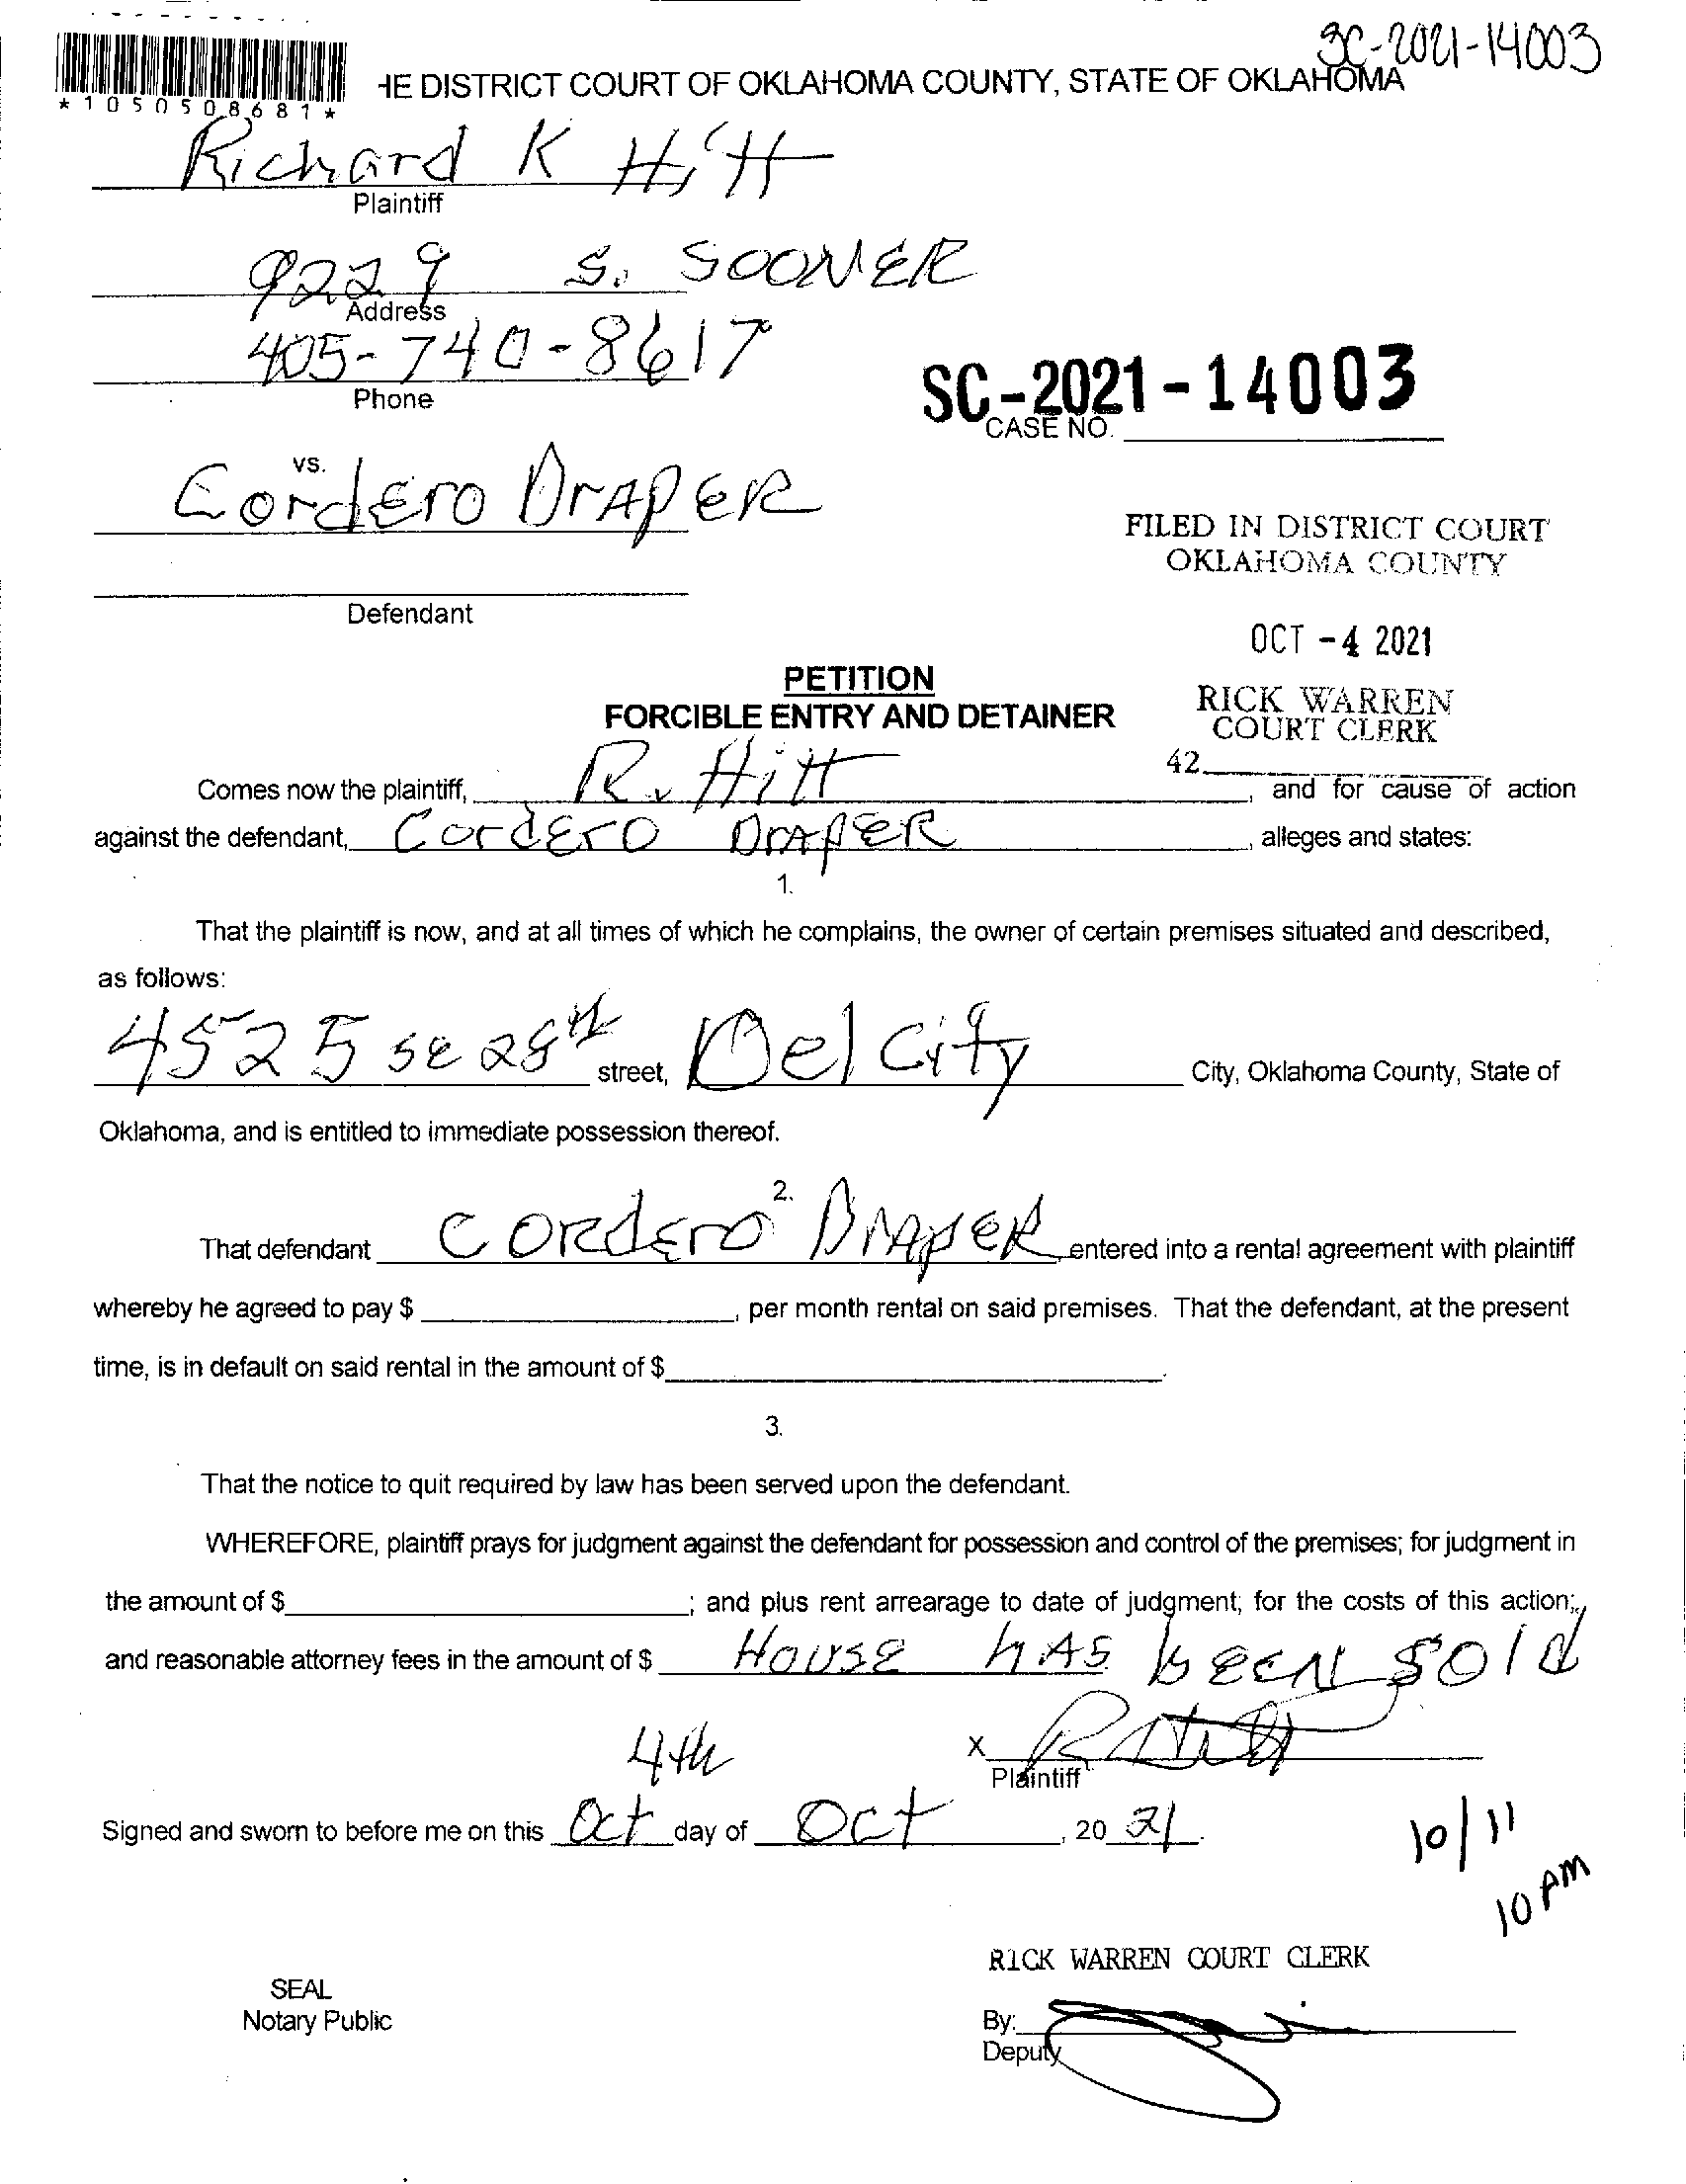 SC-2021-14003
HE DISTRICT COURT OF OKLAHOMA COUNTY, STATE OF OKLAHOMA
*1050508681*
Richard K Hitt
Plaintiff
9229 S. SOONER
Address
405-740-8617
Phone
SC-2021-14003
CASE NO.
vs.
Cordero Draper
FILED IN DISTRICT COURT
OKLAHOMA COUNTY
Defendant
OCT -4 2021
PETITION
FORCIBLE ENTRY AND DETAINER
RICK WARREN
COURT CLERK
42
Comes now the plaintiff, R. Hitt, and for cause of action
against the defendant, Cordero Draper, alleges and states:
1.
That the plaintiff is now, and at all times of which he complains, the owner of certain premises situated and described,
as follows:
4525 SE 28th street, Del City City, Oklahoma County, State of
Oklahoma, and is entitled to immediate possession thereof.
2.
That defendant Cordero Draper, entered into a rental agreement with plaintiff
whereby he agreed to pay $, per month rental on said premises. That the defendant, at the present
time, is in default on said rental in the amount of $.
3.
That the notice to quit required by law has been served upon the defendant.
WHEREFORE, plaintiff prays for judgment against the defendant for possession and control of the premises; for judgment in
the amount of $; and plus rent arrearage to date of judgment; for the costs of this action;
and reasonable attorney fees in the amount of $ House has been sold
4th
x R Hitt
Plaintiff
Signed and sworn to before me on this Oct day of Oct, 20 21.
10/11
10 AM
RICK WARREN COURT CLERK
SEAL
Notary Public
By:
Deputy